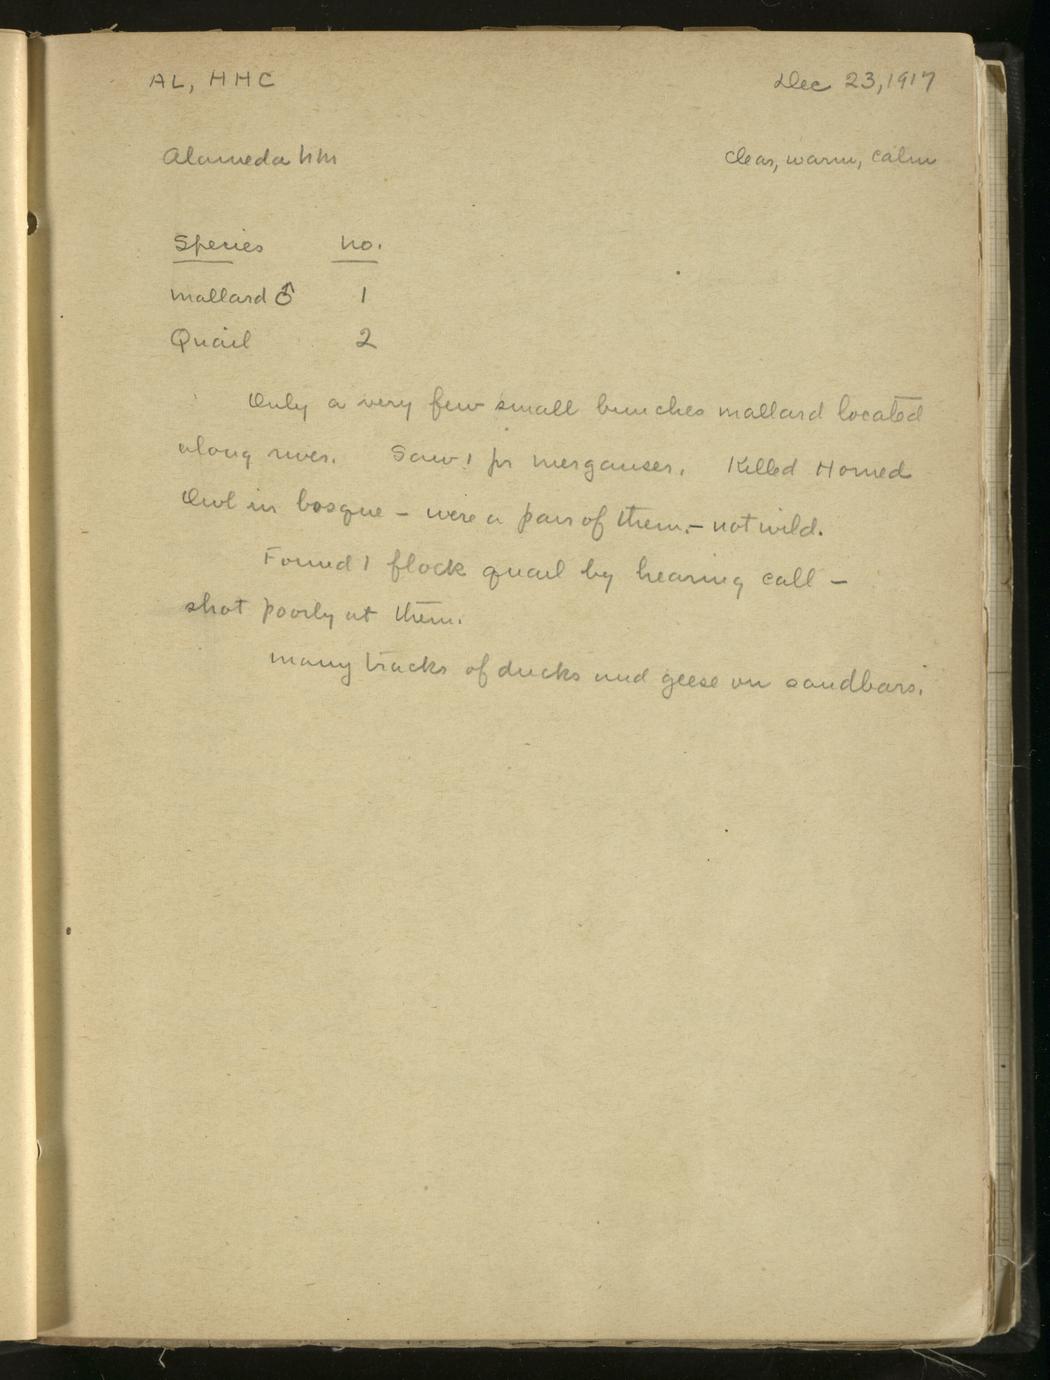 AL, HHC
Dec 23, 1917
Alameda NM
clear, warm, calm
Species no.
mallard ♂ 1
Quail 2
Only a very few small bunches mallard located
along river. Saw 1 pr merganser. Killed Horned
Owl in bosque - were a pair of them. - not wild.
Found 1 flock quail by hearing call -
shot poorly at them.
many tracks of ducks and geese on sandbars.